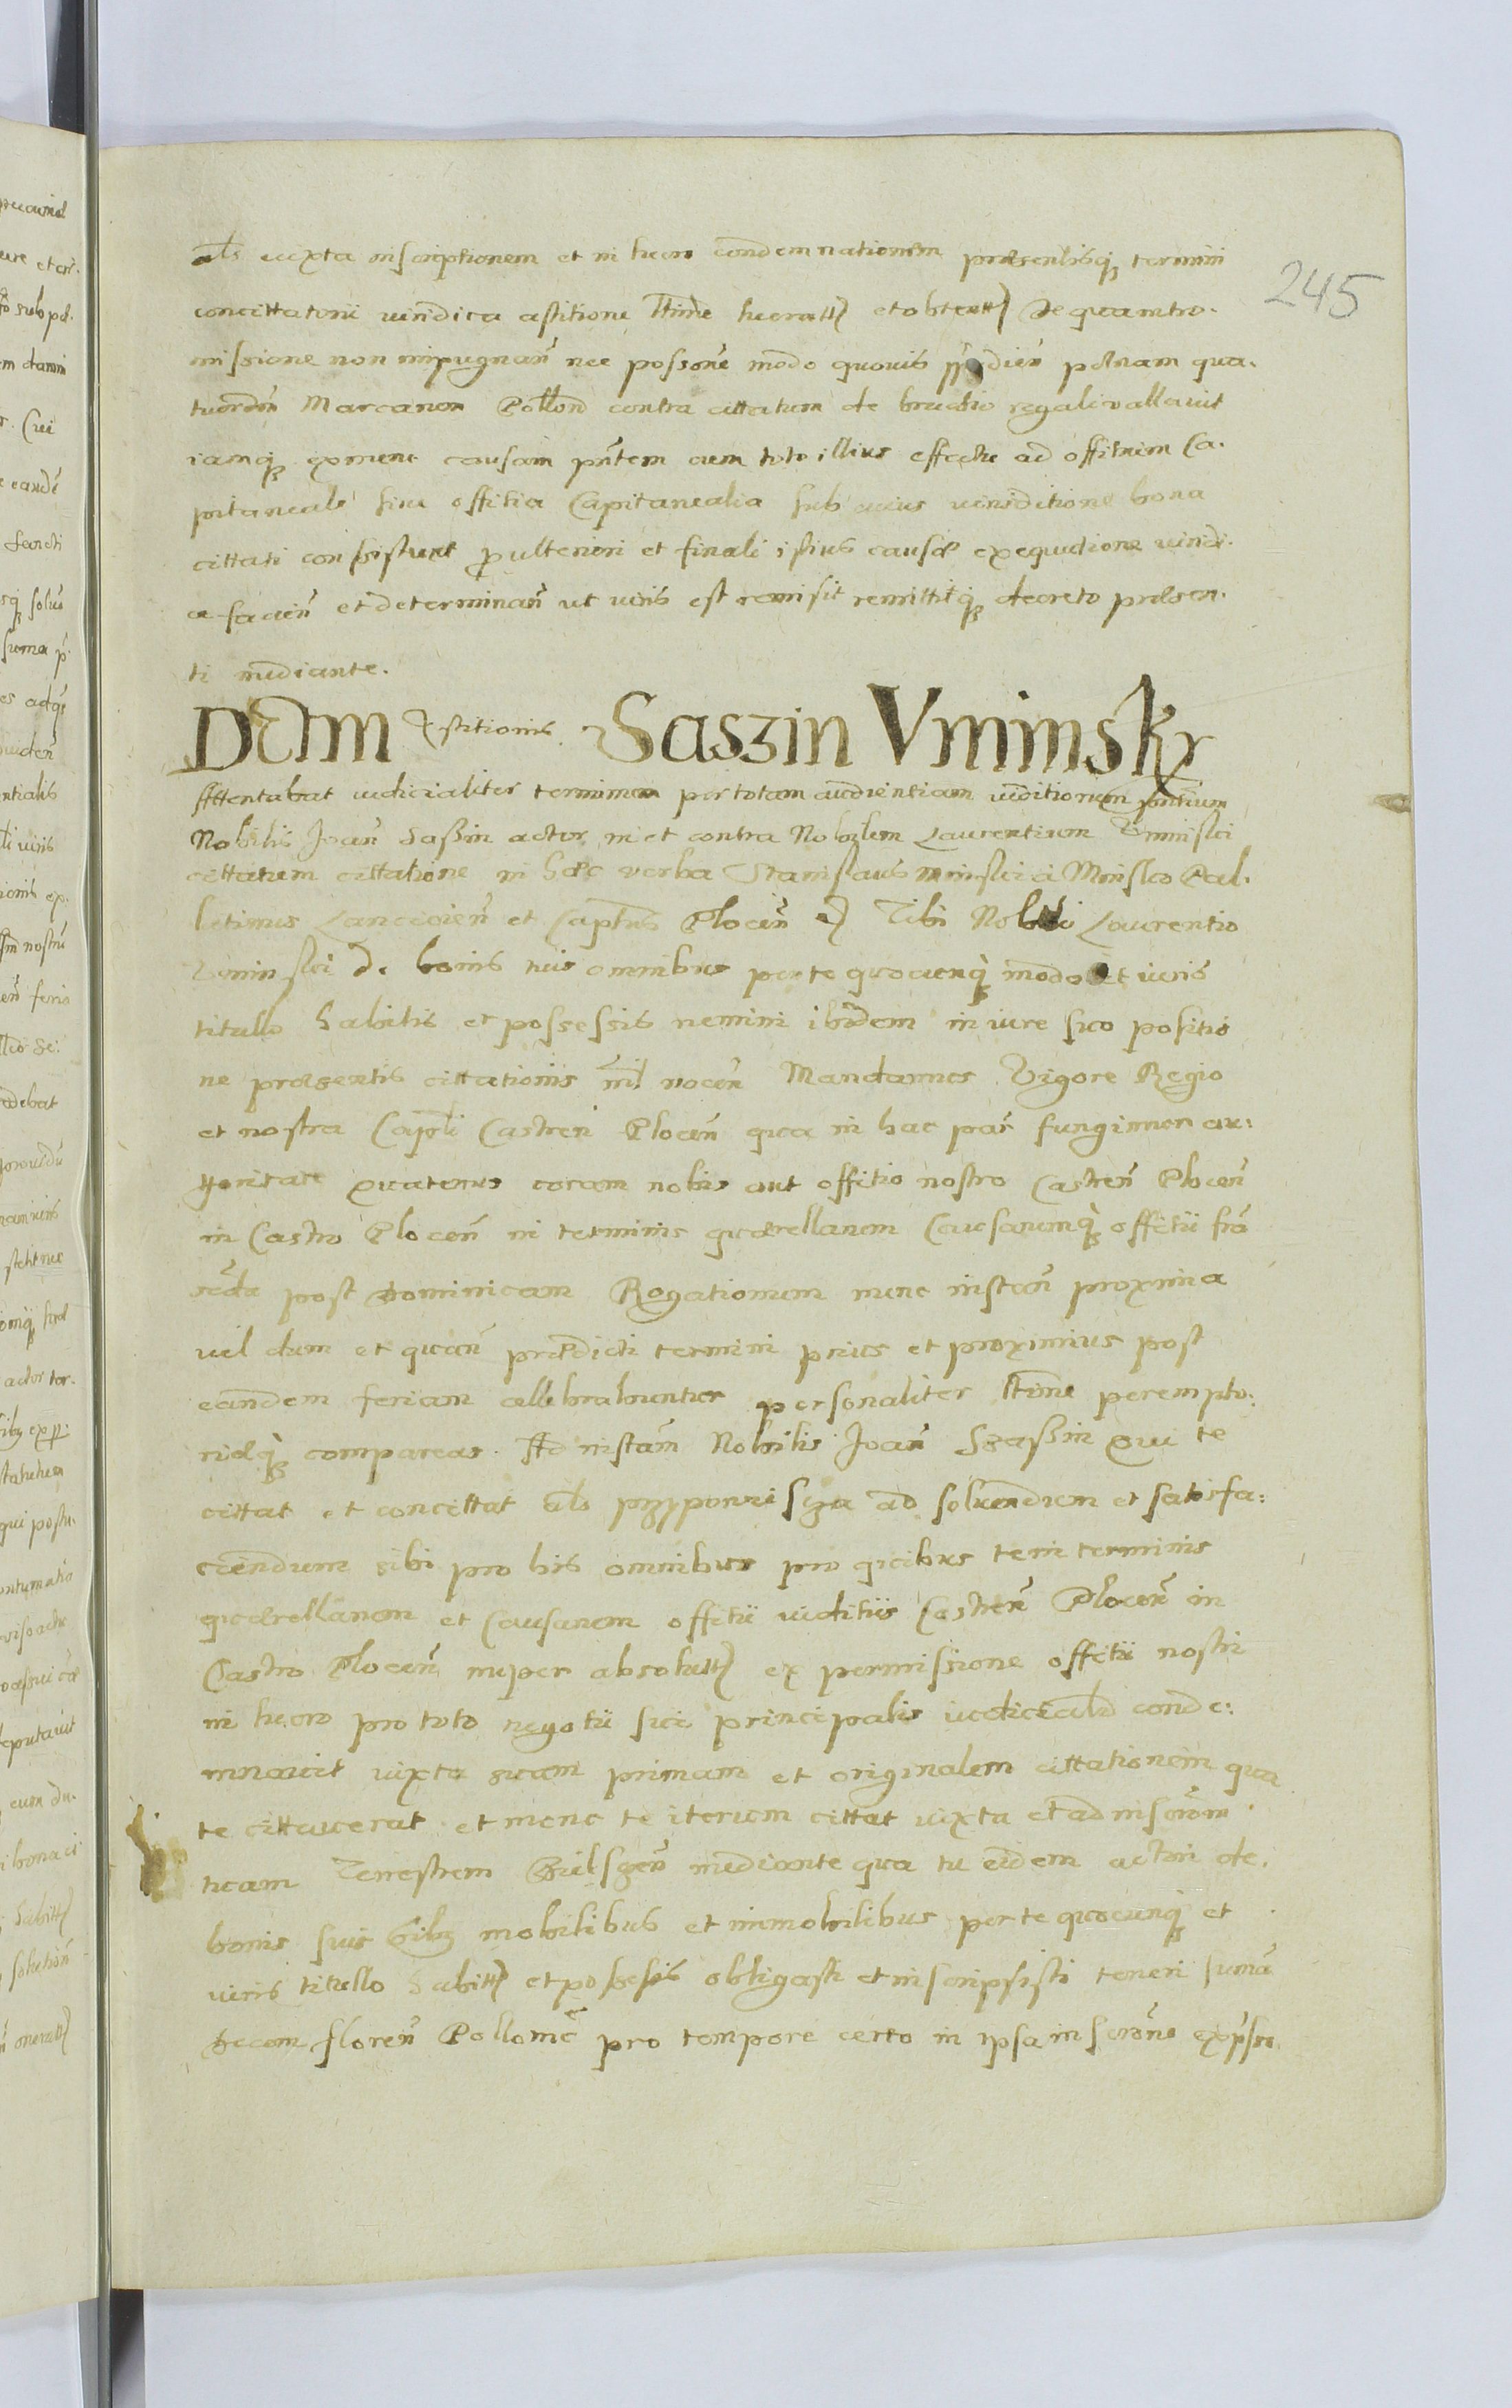 als iuxta inscriptionem et in lucro condemnationem praesentisq3 termini
concittatorii iuridica astitione ltime lucratt et obtentt De qua intro-
missione non impugnan nec possone modo quovis poenam qua-
tuordn Marcarum Pollon contra cittatum de brachio regali vallavit
iamq3 exnunc causam pntem cum toto illius effectu ad offitium Ca-
pitaneale sive offitia Capitanealia sub cuius iurisditione bona
cittati consistunt pro ulteriori et finali istius causae exequutione iuridi-
ce facien et determinan ut iuris est remisit remittitq3 decreto praesen-
ti mediante.
245
Dcdm Astitionis Saszin Vminsky
Attentabat iudicialiter terminum per totam audientiam iuditiorum pntium
Nobilis Joan Sassin actor in et contra Nobilem Laurentium Uminski
cittatum cittatione in haec verba Stanislaus Minski a Minsko Pal-
latinus Lancicien et Captus Plocen Tibi Nobili Laurentio
Uminski de bonis tuis omnibus per te quocunq3 modo et iuris
titullo habitis et possessis nemini ibidem in iure suo positio
ne praesentis cittationis nil nocen Mandamus Vigore Regio
et nostra Capli Castren Plocen qua in hac par fungimur au-
thoritate quatenus coram nobis aut offitio nostro Castren Plocen
in Castro Plocen in terminis quaerellarum Causarumq3 offitii fra
secda post Dominicam Rogationum nunc instan proxima
vel dum et quan praedicti termini prius et proximius post
eandem feriam cellebrabuntur personaliter ltime perempto-
rieq3 compareas. Ad instam Nobilis Joan Szassin qui te
cittat et concittat als przyponzi sza ad solvendum et satisfa-
ciendum sibi pro his omnibus pro quibus te in terminis
quaerellarum et Causarum offitii iuditiis Castren Plocen in
Castro Plocen nuper absolutt ex permissione offitii nostri
in lucro pro toto negotii sui principalis iudicialr conde-
mnavit iuxta suam primam et originalem cittationem qua
te cittaverat et nunc te iterum cittat iuxta et ad inscrom
tuam Terrestrem Bielszen mediante qua tu eidem actori de
bonis suis oibus mobilibus et immobilibus per te quocunq3 et
iuris titullo habitt et possesis obligasti et inscripsisti teneri suma
decem floren Pollonic pro tempore certo in ipsa inscrone expso